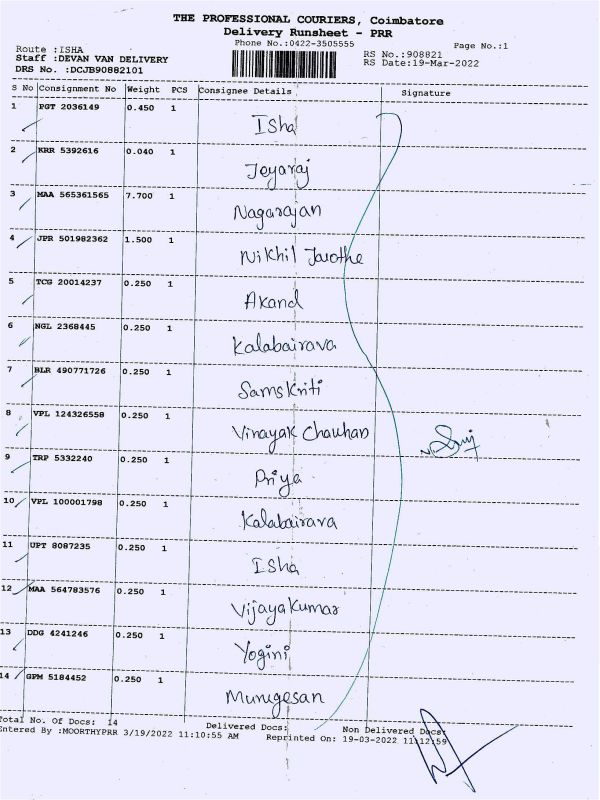 THE PROFESSIONAL COURIERS, Coimbatore
Delivery Runsheet - PRR
Phone No.:0422-3505555 Page No.:1
Route :ISHA RS No.:908821
Staff :DEVAN VAN DELIVERY RS Date:19-Mar-2022
DRS No. :DCJB90882101
S No Consignment No Weight PCS Consignee Details Signature
1 PGT 2036149 0.450 1 Isha
2 KRR 5392616 0.040 1 Jeyaraj
3 MAA 565361565 7.700 1 Nagarajan
4 JPR 501982362 1.500 1 Nikhil
5 TCG 20014237 0.250 1 Akand
6 NGL 2368445 0.250 1 Kalabairava
7 BLR 490771726 0.250 1 Samskriti
8 VPL 124326558 0.250 1 Vinayak Chauhan
9 TRP 5332240 0.250 1 Priya
10 VPL 100001798 0.250 1 Kalabairava
11 UPT 8087235 0.250 1 Isha
12 MAA 564783576 0.250 1 Vijayakumar
13 DDG 4241246 0.250 1 Yogini
14 GPM 5184452 0.250 1 Murugesan
Total No. Of Docs: 14 Delivered Docs: Non Delivered Docs:
Entered By :MOORTHYPRR 3/19/2022 11:10:55 AM Reprinted On: 19-03-2022 11:12:59